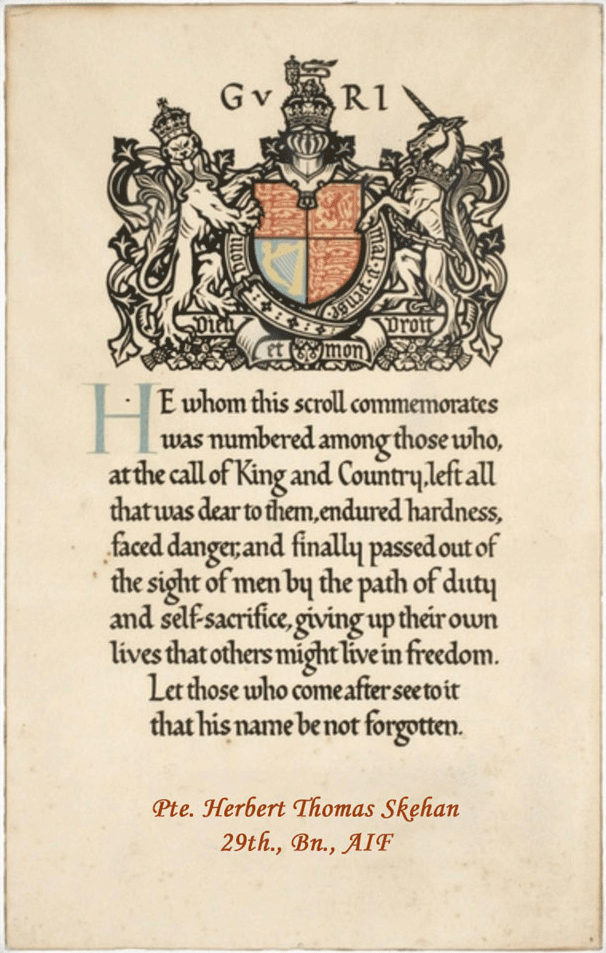 G V R I
Honi mal·y·pense
Dieu Droit
et mon
HE whom this scroll commemorates
was numbered among those who,
at the call of King and Country, left all
that was dear to them, endured hardness,
faced danger, and finally passed out of
the sight of men by the path of duty
and self-sacrifice, giving up their own
lives that others might live in freedom.
Let those who come after see to it
that his name be not forgotten.
Pte. Herbert Thomas Skehan
29th., Bn., AIF